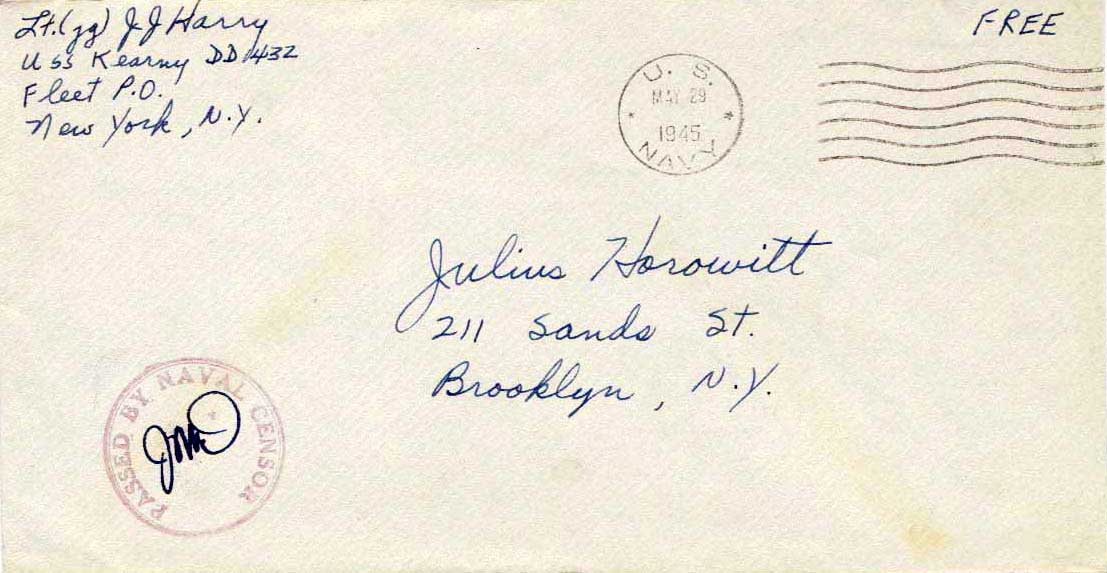 Lt.(jg) J J Harry
USS Kearny DD 432
Fleet P.O.
New York, N.Y.
FREE
U. S.
MAY 29
1945
NAVY
Julius Horowitt
211 Sands St.
Brooklyn, N.Y.
PASSED BY NAVAL CENSOR